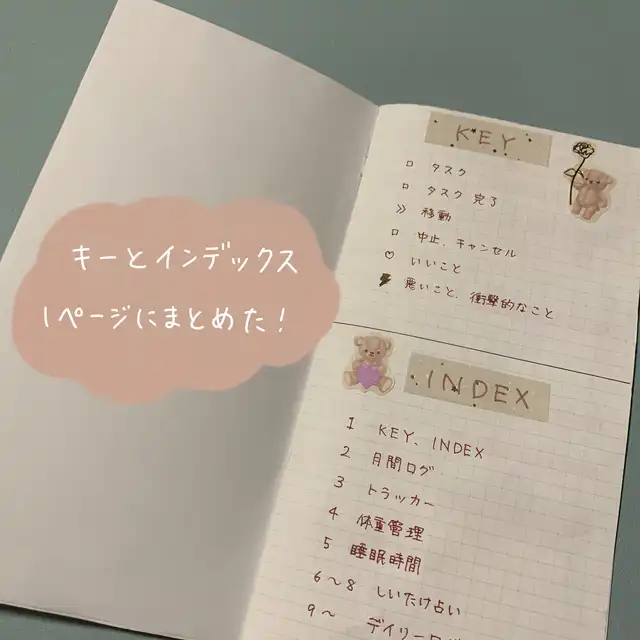 キーとインデックス
1ページにまとめた!
KEY
タスク
タスク完了
>> 移動
中止、キャンセル
♡ いいこと
悪いこと、衝撃的なこと
INDEX
1 KEY、INDEX
2 月間ログ
3 トラッカー
4 体重管理
5 睡眠時間
6〜8 しいたけ占い
9〜 デイリーログ